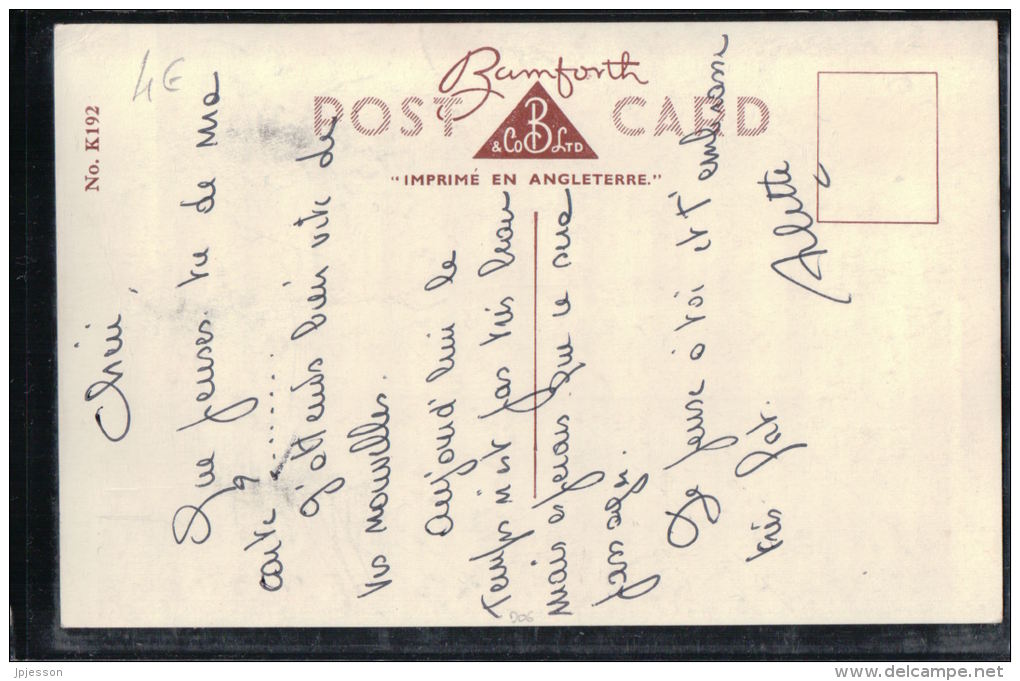 No. K192
4€
Bamforth
POST CARD
& Co B LTD
"IMPRIMÉ EN ANGLETERRE."
Chéri,
Que penses-tu de ma
carte ? ........
J'attends bien vite de
tes nouvelles.
Aujourd'hui le
Temps n'est pas très beau
mais espérons que le sera
Je pense à toi et t'embrasse
très fort.
Arlette
DOG
jpjesson
www.delcampe.net